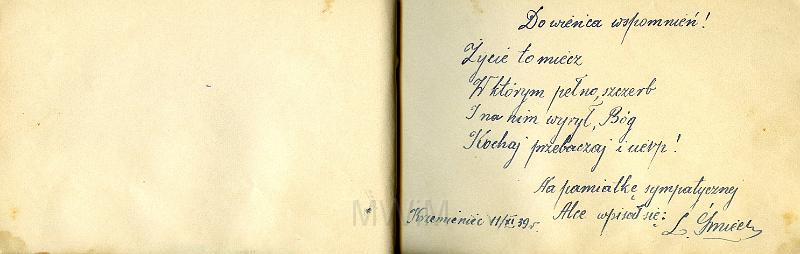 Do wieńca wspomnień!
Życie to miecz
W którym pełno, szczerb
I na nim wyrył, Bóg
Kochaj przebaczaj i cierp!
Na pamiątkę sympatycznej
Alce wpisał się:
Krzemieniec 11/XI 39 r.
L.
MWiM